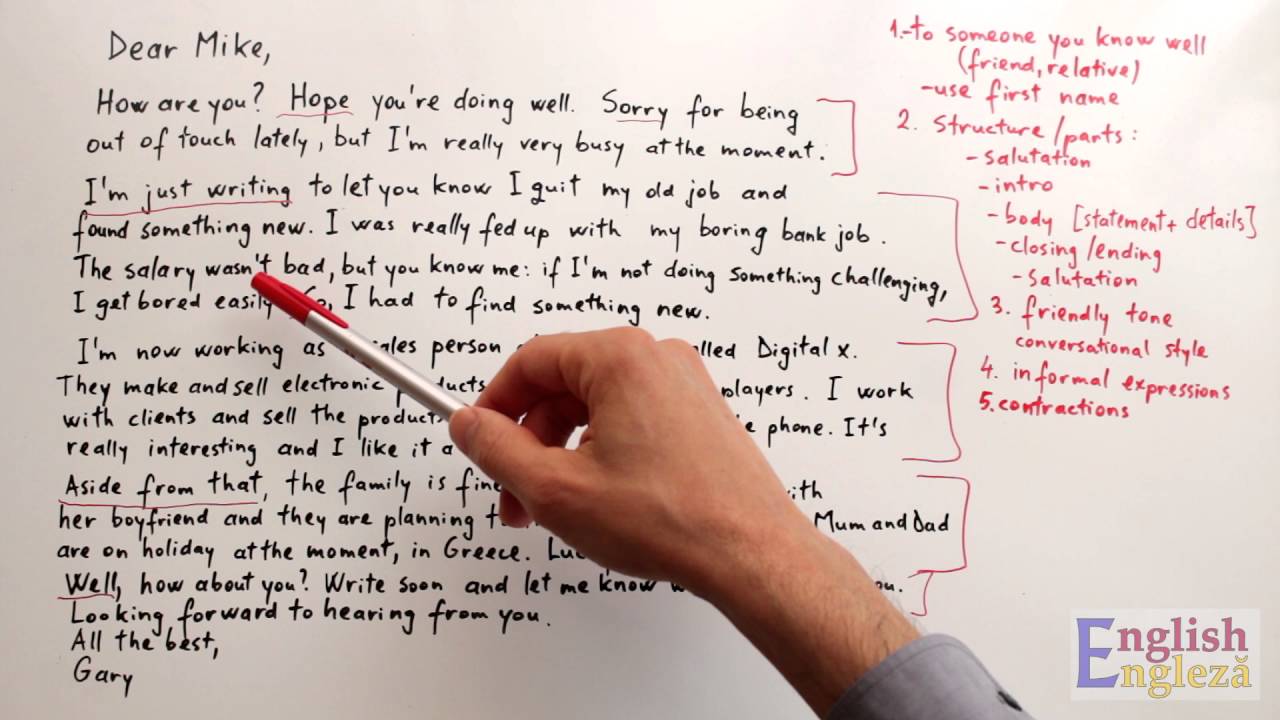 Dear Mike,
How are you? Hope you're doing well. Sorry for being
out of touch lately, but I'm really very busy at the moment.
I'm just writing to let you know I quit my old job and
found something new. I was really fed up with my boring bank job.
The salary wasn't bad, but you know me: if I'm not doing something challenging,
I get bored easily So, I had to find something new.
I'm now working as sales person called Digital x.
They make and sell electronic products players. I work
with clients and sell the products phone. It's
really interesting and I like it a
Aside from that, the family is fine with
her boyfriend and they are planning Mum and Dad
are on holiday at the moment, in Greece.
Well, how about you? Write soon and let me know
Looking forward to hearing from you.
All the best,
Gary
1.-to someone you know well
(friend, relative)
-use first name
2. Structure/parts:
-salutation
-intro
-body [statement + details]
-closing/ending
-salutation
3. friendly tone
conversational style
4. informal expressions
5. contractions
English
Engleză